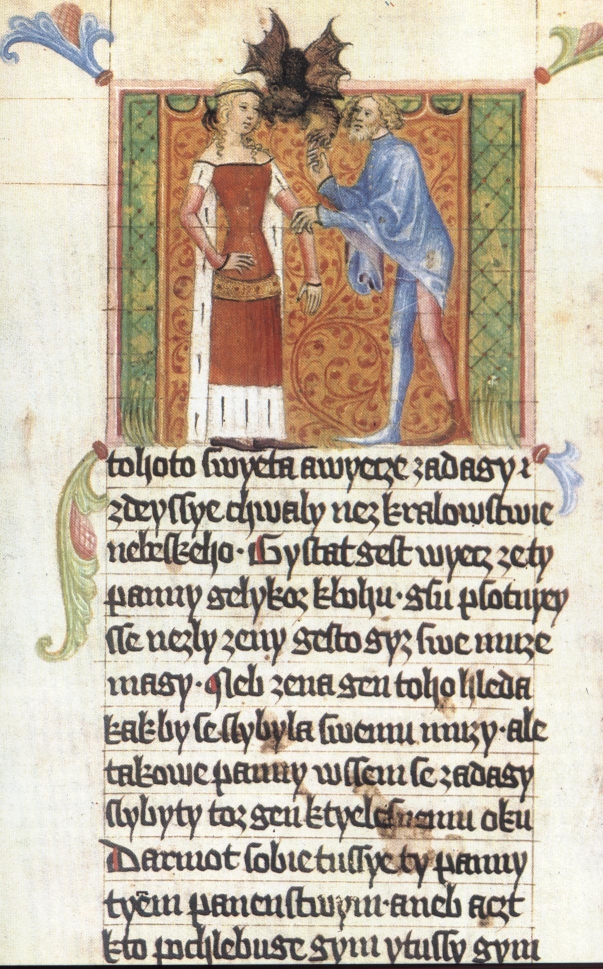 tohoto swyeta awyecze zadagy i
zdeyssye chwaly nez kralowstwie
nebeskeho · Gystat gest wyecz ze ty
panny gelykoz kbohu · gsu psotnyey
sse nezly zeny gesto gyz swe muze
magy · Neb zena gen toho hleda
kakby se slybyla swemu muzy · ale
takowe panny wssem se zadagy
slybyty toz gen ktyelesnemu oku
Darmot sobie tussye ty panny
tyēm panenstwym · aneb aczt
kto pochlebuge gym ytussy gym